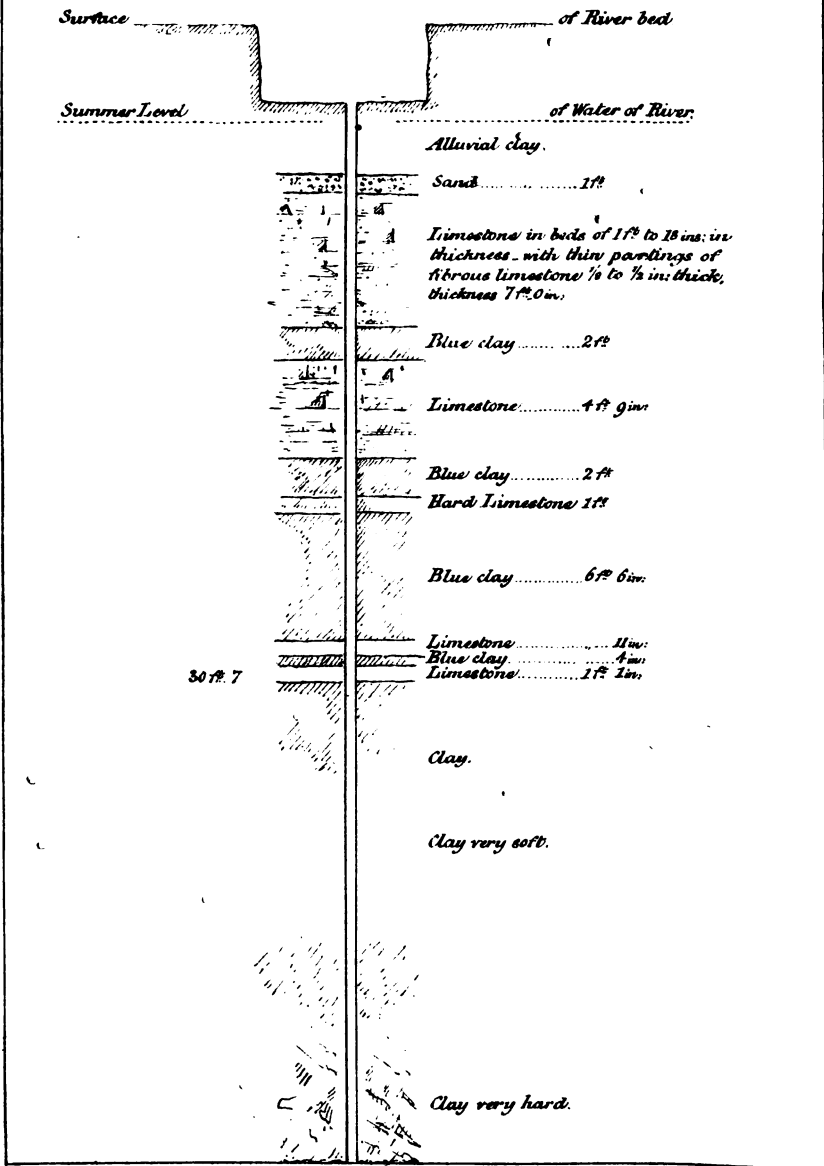 Surface of River bed
Summer Level of Water of River.
Alluvial clay.
Sand 1 ft
Limestone in beds of 1 ft to 18 ins: in
thickness - with thin partings of
fibrous limestone 1/8 to 1/2 in: thick,
thickness 7 ft. 0 in:
Blue clay 2 ft
Limestone 4 ft 9 in:
Blue clay 2 ft
Hard Limestone 1 ft
Blue clay 6 ft 6 in:
Limestone 11 in:
Blue clay 4 in:
30 ft. 7 Limestone 1 ft 1 in.
Clay.
Clay very soft.
Clay very hard.